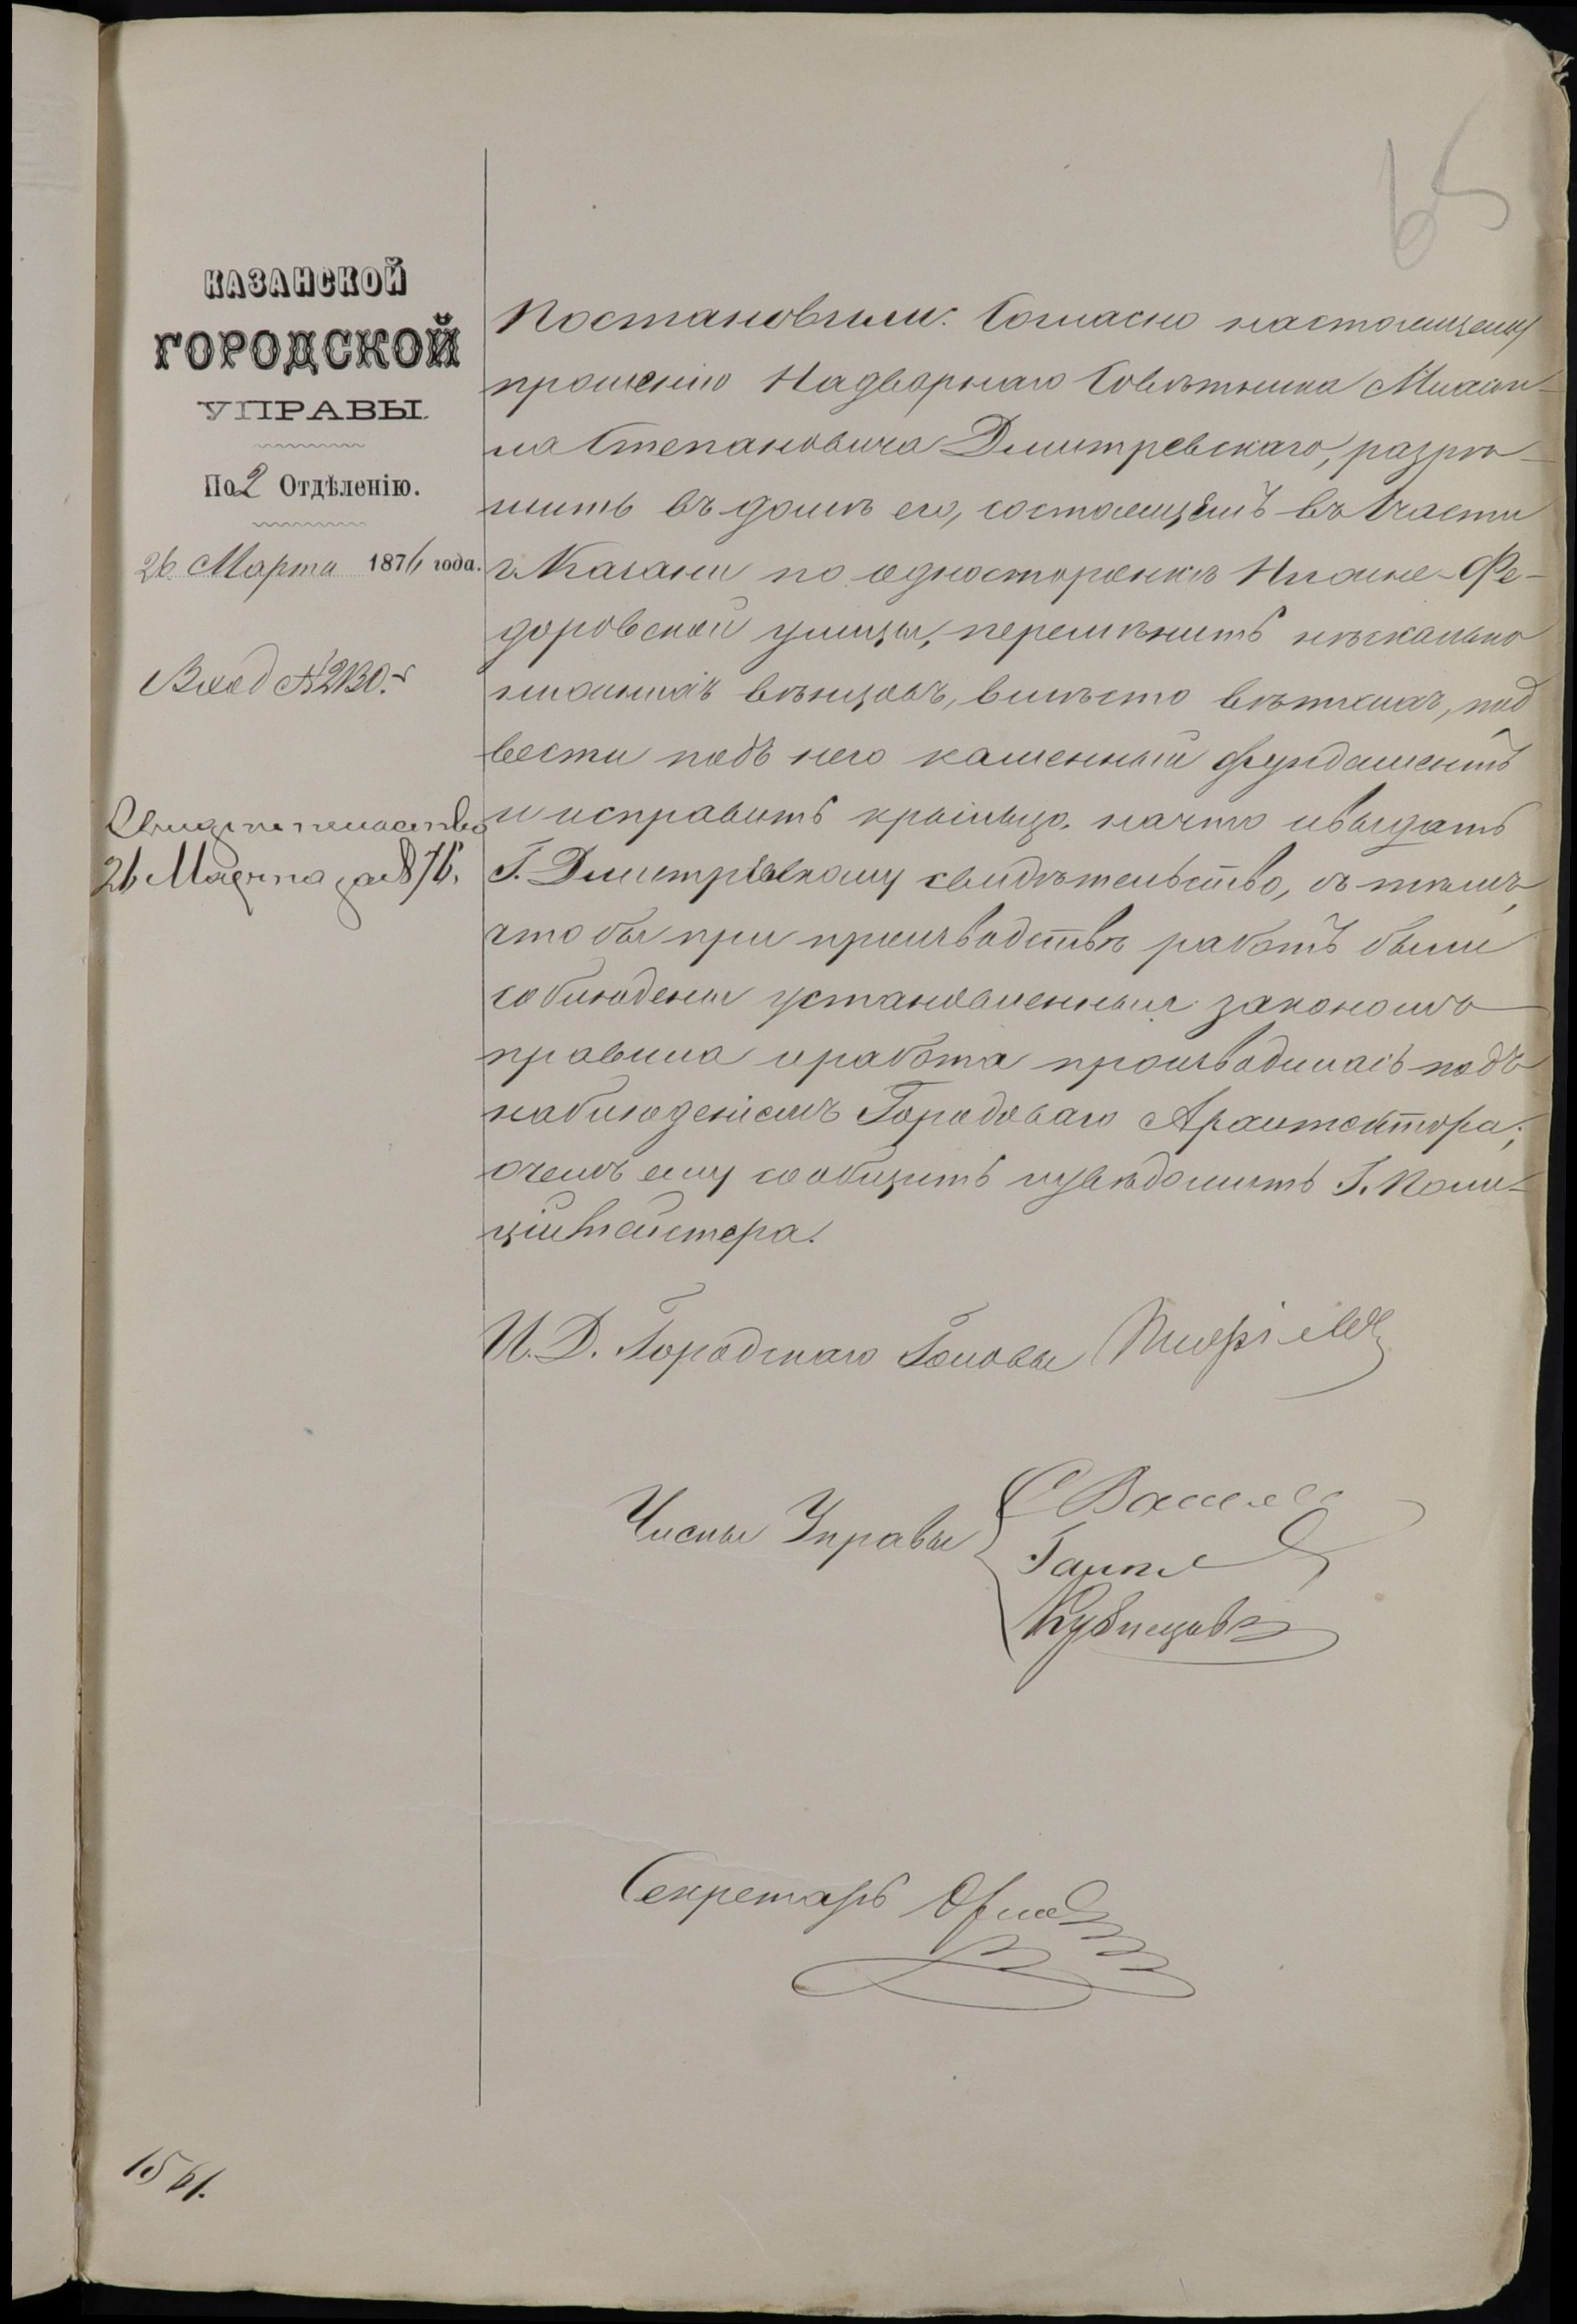 65
КАЗАНСКОЙ
ГОРОДСКОЙ
УПРАВЫ
По 2 Отдѣленію.
26 Марта 1876 года.
Вход №2130.
Свидетельство
26 Марта за
1561.
Постановили: Согласно настоящему
прошенію Надворнаго Совѣтника Михаи-
ла Степановича Дмитревскаго, разрѣ-
шить въ домѣ его, состоящемъ въ части
г. Казани по односторонкѣ Нижне-Фе-
доровской улицы, перемѣнить нѣсколько
нижнихъ вѣнцовъ, вмѣсто вѣтхихъ, под
вести подъ него каменный фундаментъ
и исправить крыльцо, на что и выдать
Г. Дмитревскому свидѣтельство, съ тѣмъ,
чтобы при производствѣ работъ были
соблюдены установленныя закономъ
правила и работа производилась подъ
наблюденіемъ Городоваго Архитектора;
о чемъ ему сообщить и увѣдомить Г. Поли-
ційместера.
И. Д. Городскаго Головы
Члены Управы
Кузнецовъ
Секретарь Орлов